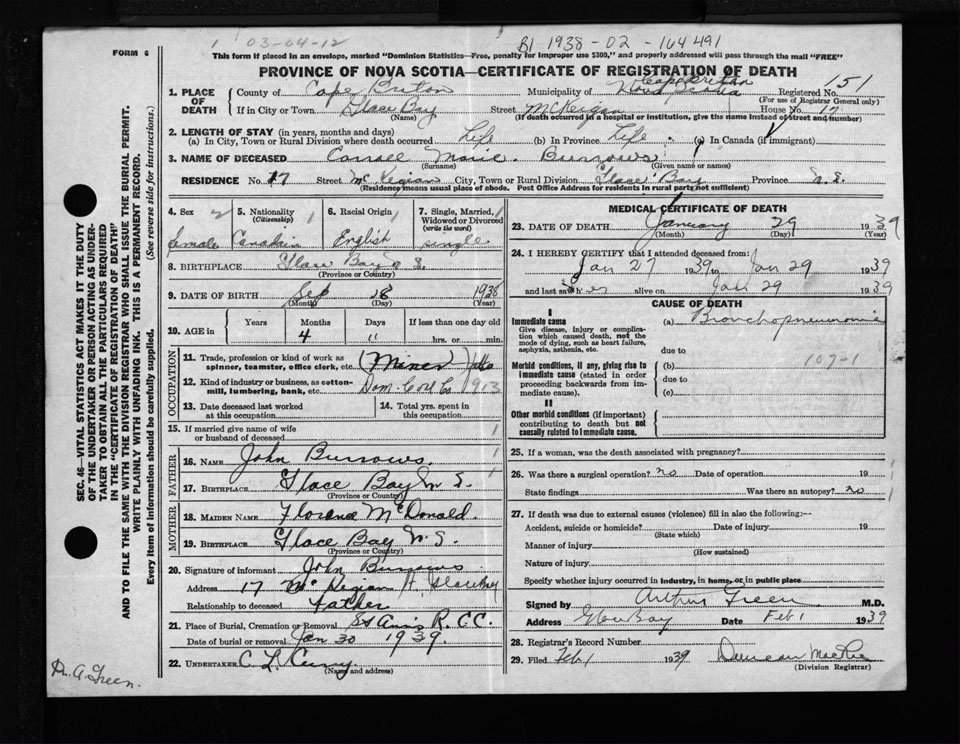 03-04-12
B1 1938-02-164491
FORM 6
This form if placed in an envelope, marked "Dominion Statistics—Free, penalty for improper use $300," and properly addressed will pass through the mail "FREE"
PROVINCE OF NOVA SCOTIA—CERTIFICATE OF REGISTRATION OF DEATH
1. PLACE OF DEATH
County of Cape Breton Municipality of Cape Breton Nova Scotia Registered No. 151
(For use of Registrar General only)
If in City or Town Glace Bay Street McKeigan House No. 17
(Name) (If death occurred in a hospital or institution, give the name instead of street and number)
2. LENGTH OF STAY (in years, months and days)
(a) In City, Town or Rural Division where death occurred Life (b) In Province Life (c) In Canada (if immigrant)
3. NAME OF DECEASED Carroll Marie Burrows
(Surname) (Given name or names)
RESIDENCE No. 17 Street McKegian City, Town or Rural Division Glace Bay Province N. S.
(Residence means usual place of abode. Post Office Address for residents in rural parts not sufficient)
4. Sex 2 female
5. Nationality (Citizenship) 1 Canadain
6. Racial Origin 1 English
7. Single, Married, Widowed or Divorced (write the word) 1 single
8. BIRTHPLACE Glace Bay N S.
(Province or Country)
9. DATE OF BIRTH Sep 28 1938
(Month) (Day) (Year)
10. AGE in Years Months 4 Days " If less than one day old hrs. or min.
OCCUPATION
11. Trade, profession or kind of work as spinner, teamster, office clerk, etc. (Miner)
12. Kind of industry or business, as cotton-mill, lumbering, bank, etc. Dom. Coal Co 1913
13. Date deceased last worked at this occupation
14. Total yrs. spent in this occupation
15. If married give name of wife or husband of deceased 1
FATHER
16. NAME John Burrows 1
17. BIRTHPLACE Glace Bay N S. 1
(Province or Country)
MOTHER
18. MAIDEN NAME Florence McDonald.
19. BIRTHPLACE Glace Bay N. S.
(Province or Country)
20. Signature of informant John Burrows
Address 17 McKegian St. Glace Bay
Relationship to deceased Father
21. Place of Burial, Cremation or Removal St Anns R. C C.
Date of burial or removal Jan 30 1939.
22. UNDERTAKER C. L. Curry
(Name and address)
MEDICAL CERTIFICATE OF DEATH
23. DATE OF DEATH January 29 1939
(Month) (Day) (Year)
24. I HEREBY CERTIFY that I attended deceased from:
Jan 27 1939 to Jan 29 1939
and last saw her alive on Jan 29 1939
CAUSE OF DEATH
I
Immediate cause
Give disease, injury or complication which caused death, not the mode of dying, such as heart failure, asphyxia, asthenia, etc.
(a) Bronchopneumonia
due to
Morbid conditions, if any, giving rise to immediate cause (stated in order proceeding backwards from immediate cause).
(b) 107-1
due to
(c)
II
Other morbid conditions (if important) contributing to death but not causally related to immediate cause.
25. If a woman, was the death associated with pregnancy?
26. Was there a surgical operation? no Date of operation 19
State findings Was there an autopsy? no
27. If death was due to external causes (violence) fill in also the following:—
Accident, suicide or homicide? Date of injury 19
(State which)
Manner of injury
(How sustained)
Nature of injury
Specify whether injury occurred in industry, in home, or in public place
Signed by Arthur Green M.D.
Address Glace Bay Date Feb 1 1939
28. Registrar's Record Number
29. Filed Feb 1 1939 Duncan MacRae
(Division Registrar)
SEC. 46—VITAL STATISTICS ACT MAKES IT THE DUTY
OF THE UNDERTAKER OR PERSON ACTING AS UNDERTAKER TO OBTAIN ALL THE PARTICULARS REQUIRED
IN THE "CERTIFICATE OF REGISTRATION OF DEATH"
AND TO FILE THE SAME WITH THE DIVISION REGISTRAR WHO SHALL ISSUE THE BURIAL PERMIT.
WRITE PLAINLY WITH UNFADING INK. THIS IS A PERMANENT RECORD.
Every item of information should be carefully supplied. (See reverse side for instructions.)
Dr. A. Green.